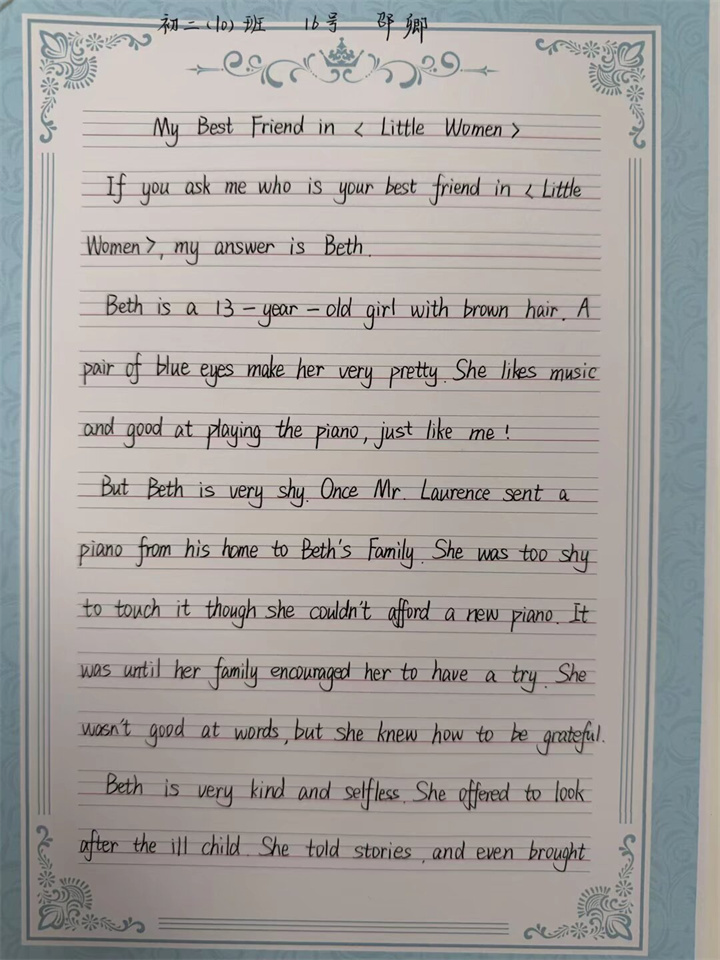 初二（10）班 16号 邵卿
My Best Friend in < Little Women >
If you ask me who is your best friend in < Little
Women >, my answer is Beth.
Beth is a 13-year-old girl with brown hair. A
pair of blue eyes make her very pretty. She likes music
and good at playing the piano, just like me!
But Beth is very shy. Once Mr. Laurence sent a
piano from his home to Beth's Family. She was too shy
to touch it though she couldn't afford a new piano. It
was until her family encouraged her to have a try. She
wasn't good at words, but she knew how to be grateful.
Beth is very kind and selfless. She offered to look
after the ill child. She told stories, and even brought